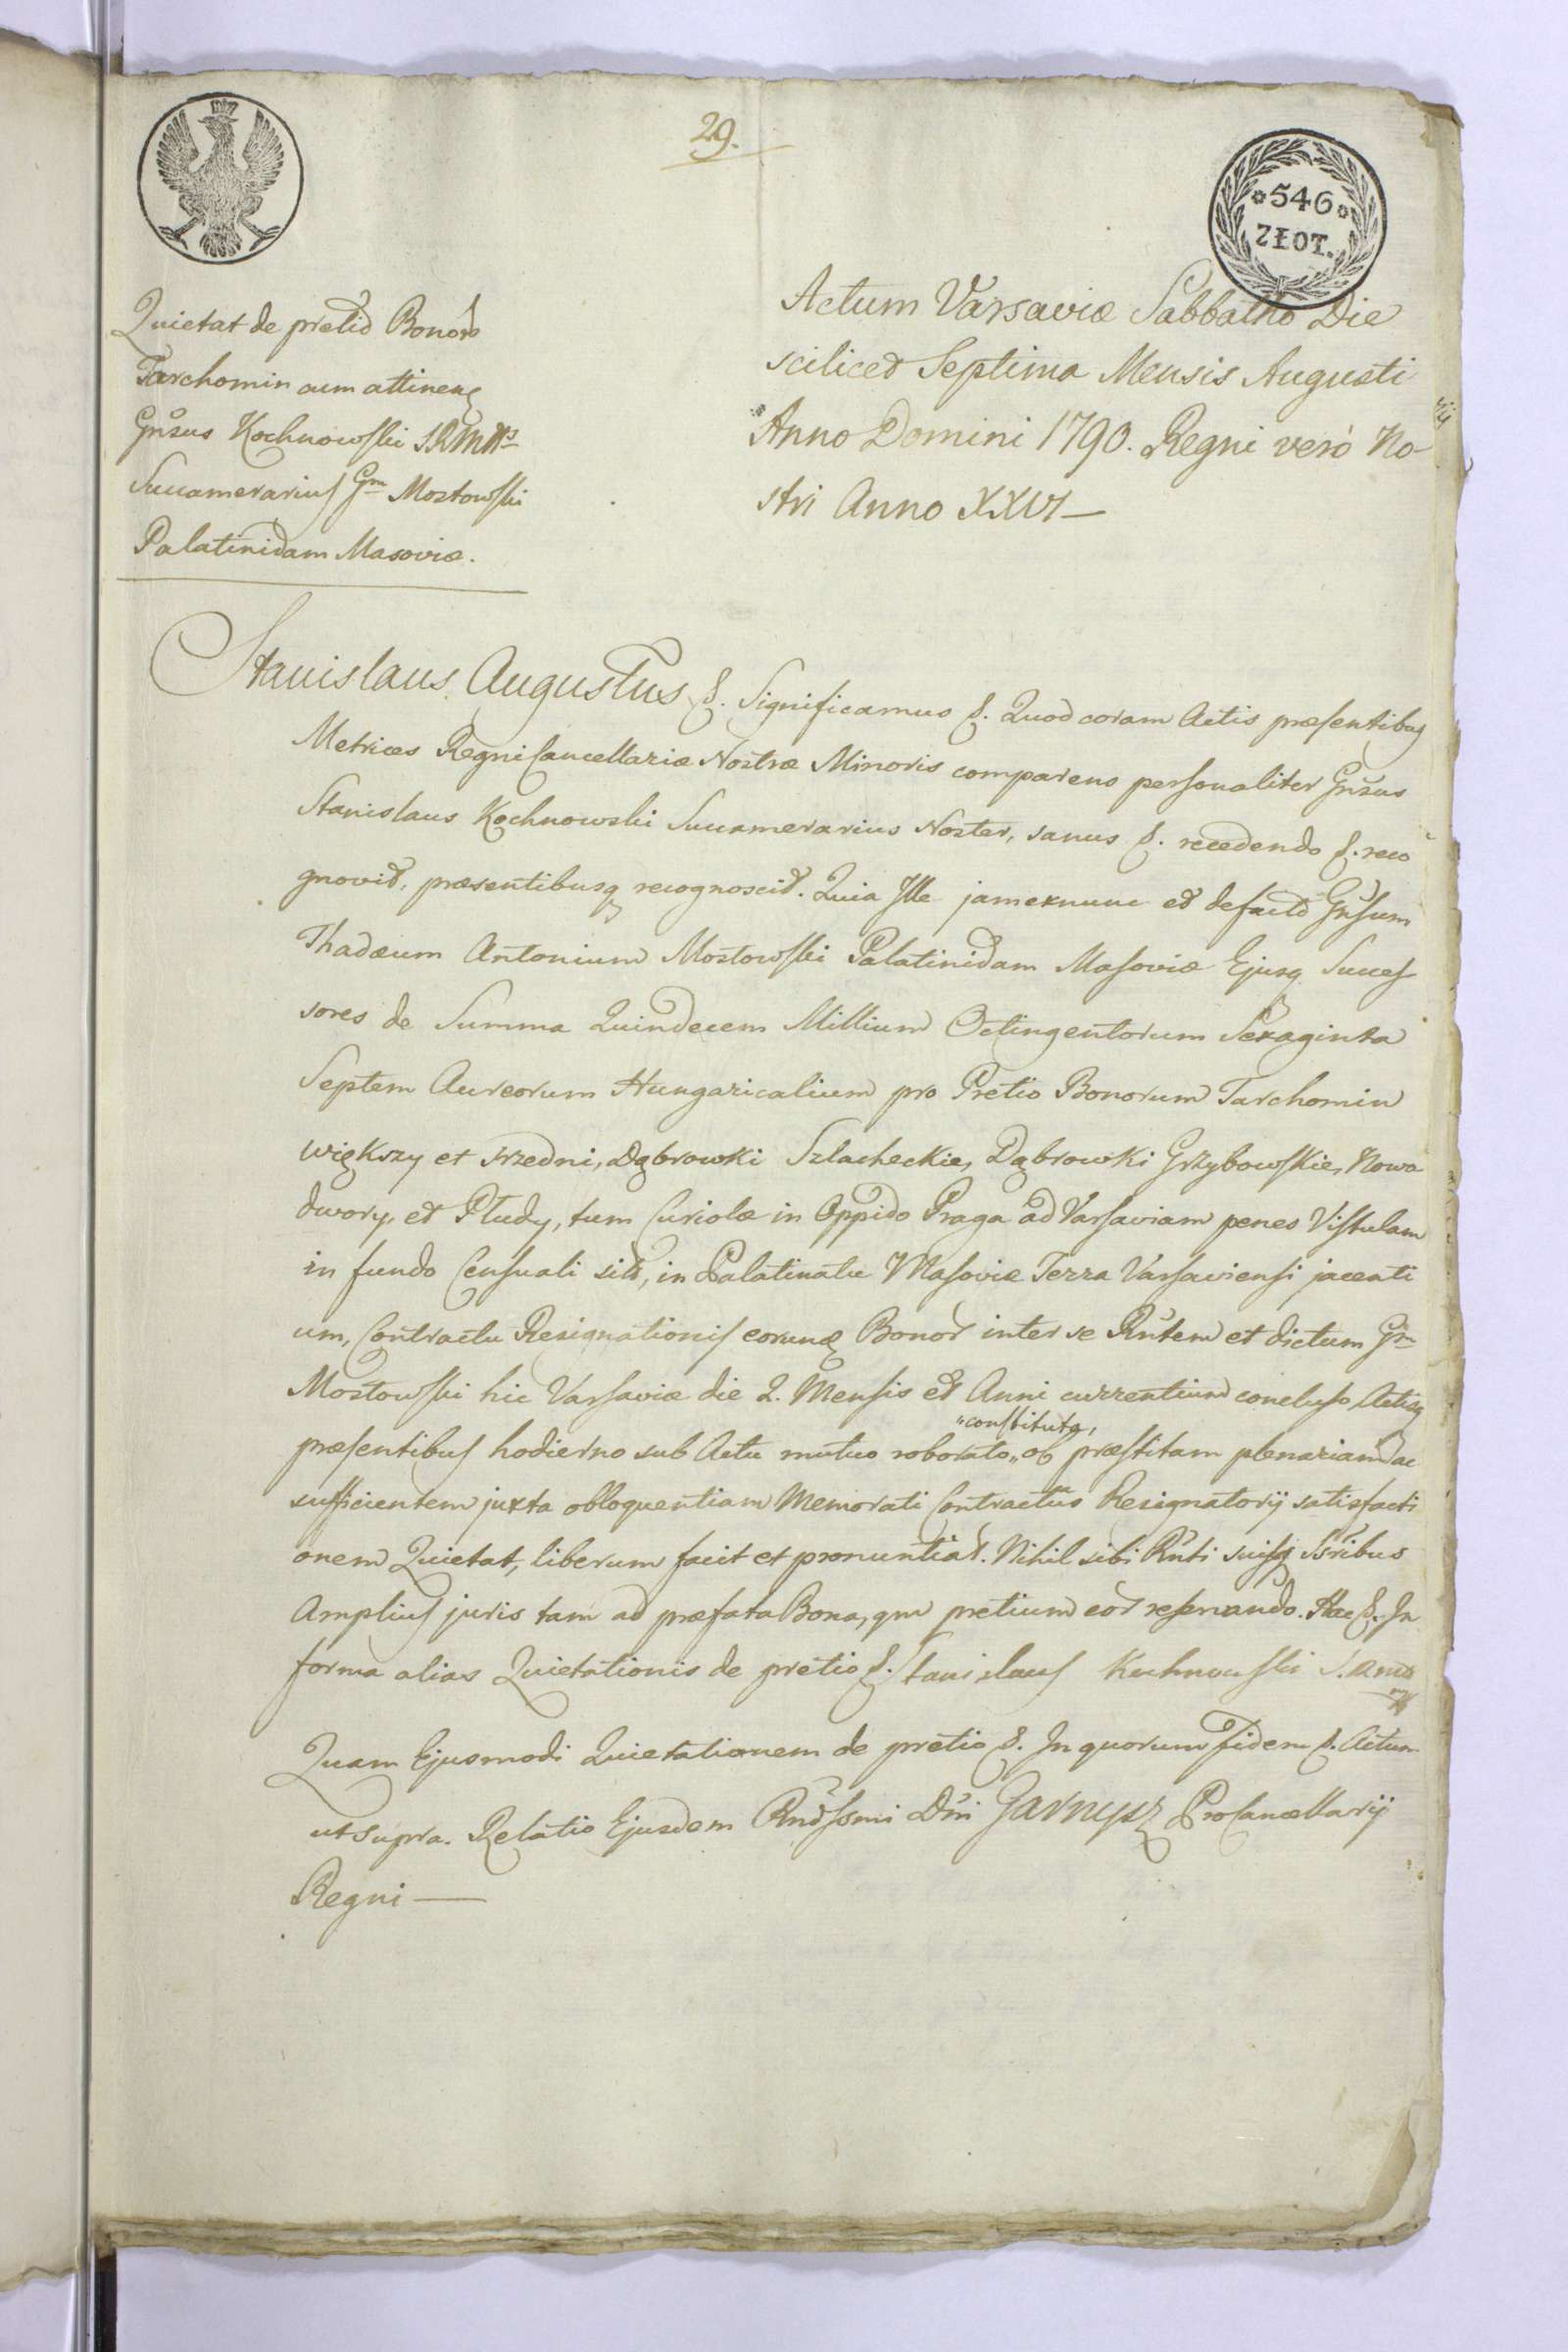 29.
546
ZŁOT.
Quietat de pretio Bonor
Tarchomin cum attinen
Gnsus Kochnowski S.R.M.
Succamerarius Gm Mostowski
Palatinidam Masoviæ.
Actum Varsaviæ Sabbatho Die
scilicet Septima Mensis Augusti
Anno Domini 1790. Regni verò No-
stri Anno XXVI—
Stanislaus Augustus &. Significamus &. Quod coram Actis præsentibus
Metrices Regni Cancellariæ Nostræ Minoris comparens personaliter Gnsus
Stanislaus Kochnowski Succamerarius Noster, sanus &. recedendo &. reco
gnovit, præsentibusq recognoscit. Quia Ille jamexnunc et defacto Gnsum
Thadæum Antonium Mostowski Palatinidam Masoviæ Ejusq Succes
sores de Summa Quindecem Millium Octingentorum Sexaginta
Septem Aureorum Hungaricalium pro Pretio Bonorum Tarchomin
większy et srzedni, Dąbrowki Szlacheckie, Dąbrowki Grzybowskie, Nowo
dwory, et Płudy, tum Curiolæ in Oppido Praga ad Varsaviam penes Vistulam
in fundo Censuali sitæ, in Palatinatu Masoviæ Terra Varsaviensi jacenti
um, Contractu Resignationis eorund Bonor inter se Rntem et dictum Gm
Mostowski hic Varsaviæ die 2. Mensis et Anni currentium concluso, Actisq
"constituta,
præsentibus hodierno sub Actu mutuo roborato,, ob præstitam plenariam ac
sufficientem juxta obloquentiam Memorati Contractûs Resignatorij satisfacti
onem Quietat, liberum facit et pronuntiat. Nihil sibi Rnti suisq Ssribus
Amplius juris tam ad præfata Bona, qm pretium eor reservando. Hac &. In
forma alias Quietationis de pretio &. Stanislaus Kochnowski
Quam Ejusmodi Quietationem de pretio &. In quorum Fidem &. Actum
ut supra. Relatio Ejusdem Rndssmi Dni Garnysz ProCancellarij
Regni —